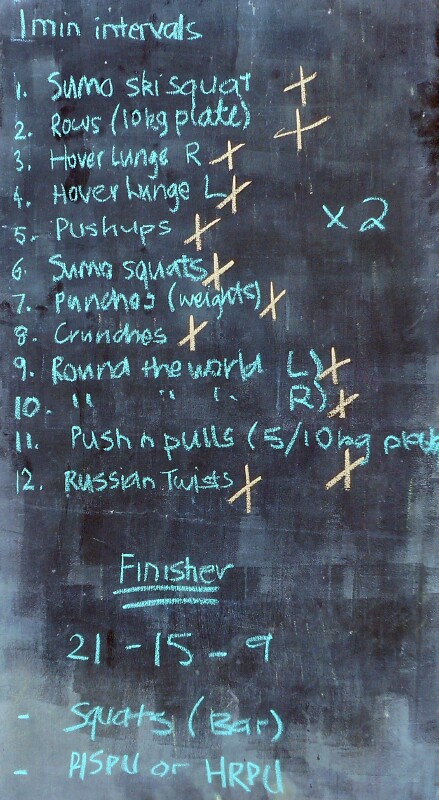 1min intervals
1. Sumo ski squat
2. Rows (10kg plate)
3. Hover Lunge R
4. Hover Lunge L
x 2
5. Pushups
6. Sumo squats
7. Punches (weights)
8. Crunches
9. Round the world L)
10. " " " R)
11. Push n pulls (5/10kg plate
12. Russian Twists
Finisher
21 - 15 - 9
- Squats (Bar)
- HSPU or HRPU